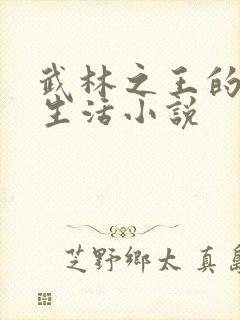 武林之王的
生活小説
芝野鄉太 真